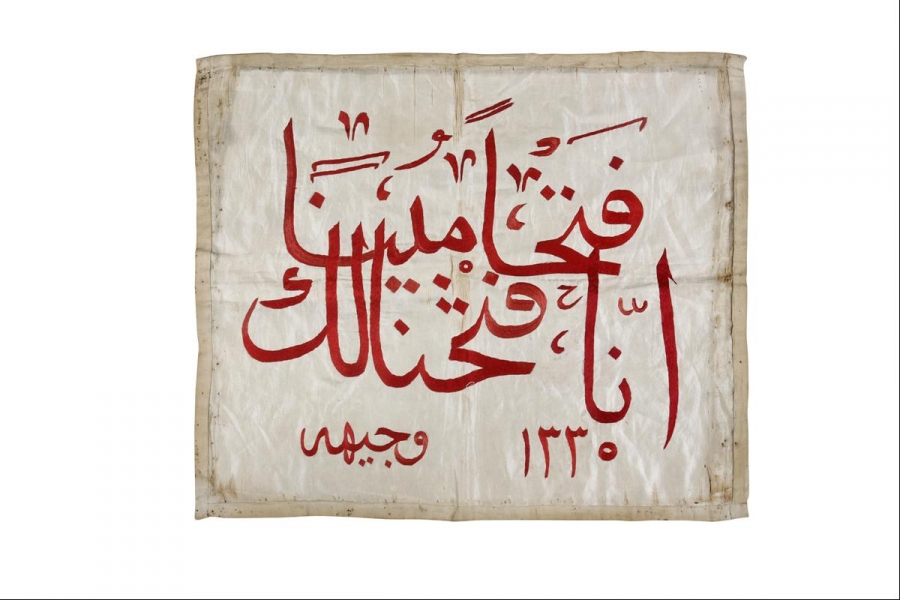 انّا فتحنا لك
فَتْحًا مُبِينًا
١٣٣٥
وجيهه